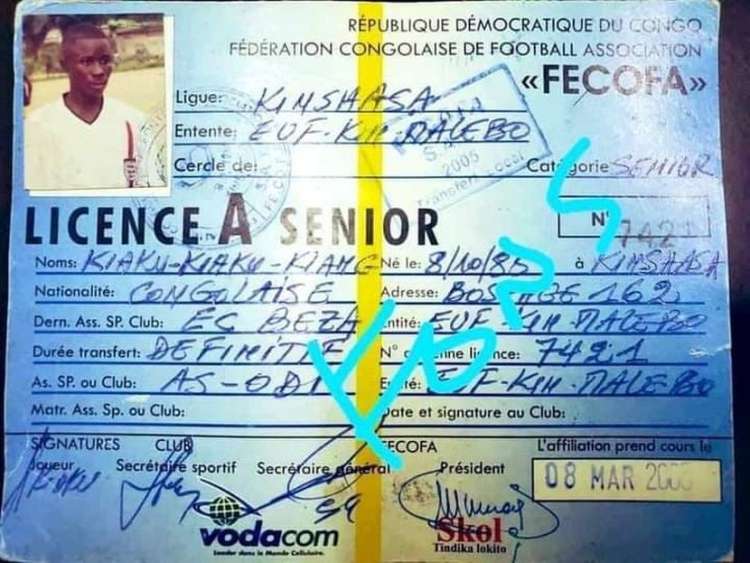 RÉPUBLIQUE DÉMOCRATIQUE DU CONGO
FÉDÉRATION CONGOLAISE DE FOOTBALL ASSOCIATION
«FECOFA»
Ligue: KINSHASA
Entente: EUF-KIN-MALEBO
Cercle de:
Catégorie SENIOR
2005
Transfert Local
LICENCE A SENIOR
N° 7421
Noms: KIAKU-KIAKU-KIANG Né le: 8/10/85 à KINSHASA
Nationalité: CONGOLAISE Adresse: 162
Dern. Ass. SP. Club: FC BEZA Entité: EUF-KIN-MALEBO
Durée transfert: DEFINITIF N° licence: 7421
As. SP. ou Club: AS-ODI EUF-KIN-MALEBO
Matr. Ass. Sp. ou Club: Date et signature au Club:
SIGNATURES CLUB FECOFA L'affiliation prend cours le
Joueur Secrétaire sportif Secrétaire général Président
08 MAR
vodacom
Leader dans le Monde Cellulaire.
Skol
Tindika lokito